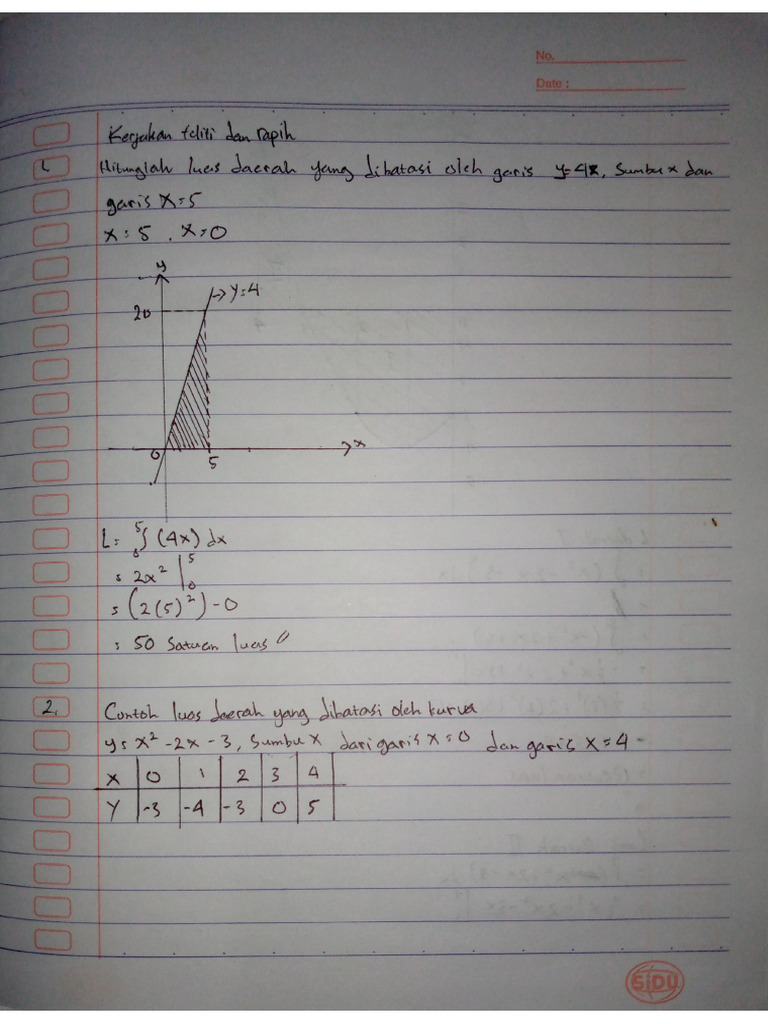 No.
Date :
Kerjakan teliti dan rapih
1. Hitunglah luas daerah yang dibatasi oleh garis y=4x, Sumbu x dan
garis x=5
x = 5 , x=0
y
→ y=4
20
0
5
x
L = ₀⁵∫ (4x) dx
= 2x² |₀⁵
= (2(5)²) - 0
= 50 Satuan luas //
2. Contoh luas daerah yang dibatasi oleh kurva
y = x² - 2x - 3, Sumbu x dari garis x=0 dan garis x=4
x | 0 | 1 | 2 | 3 | 4 |
y | -3 | -4 | -3 | 0 | 5 |
SiDU